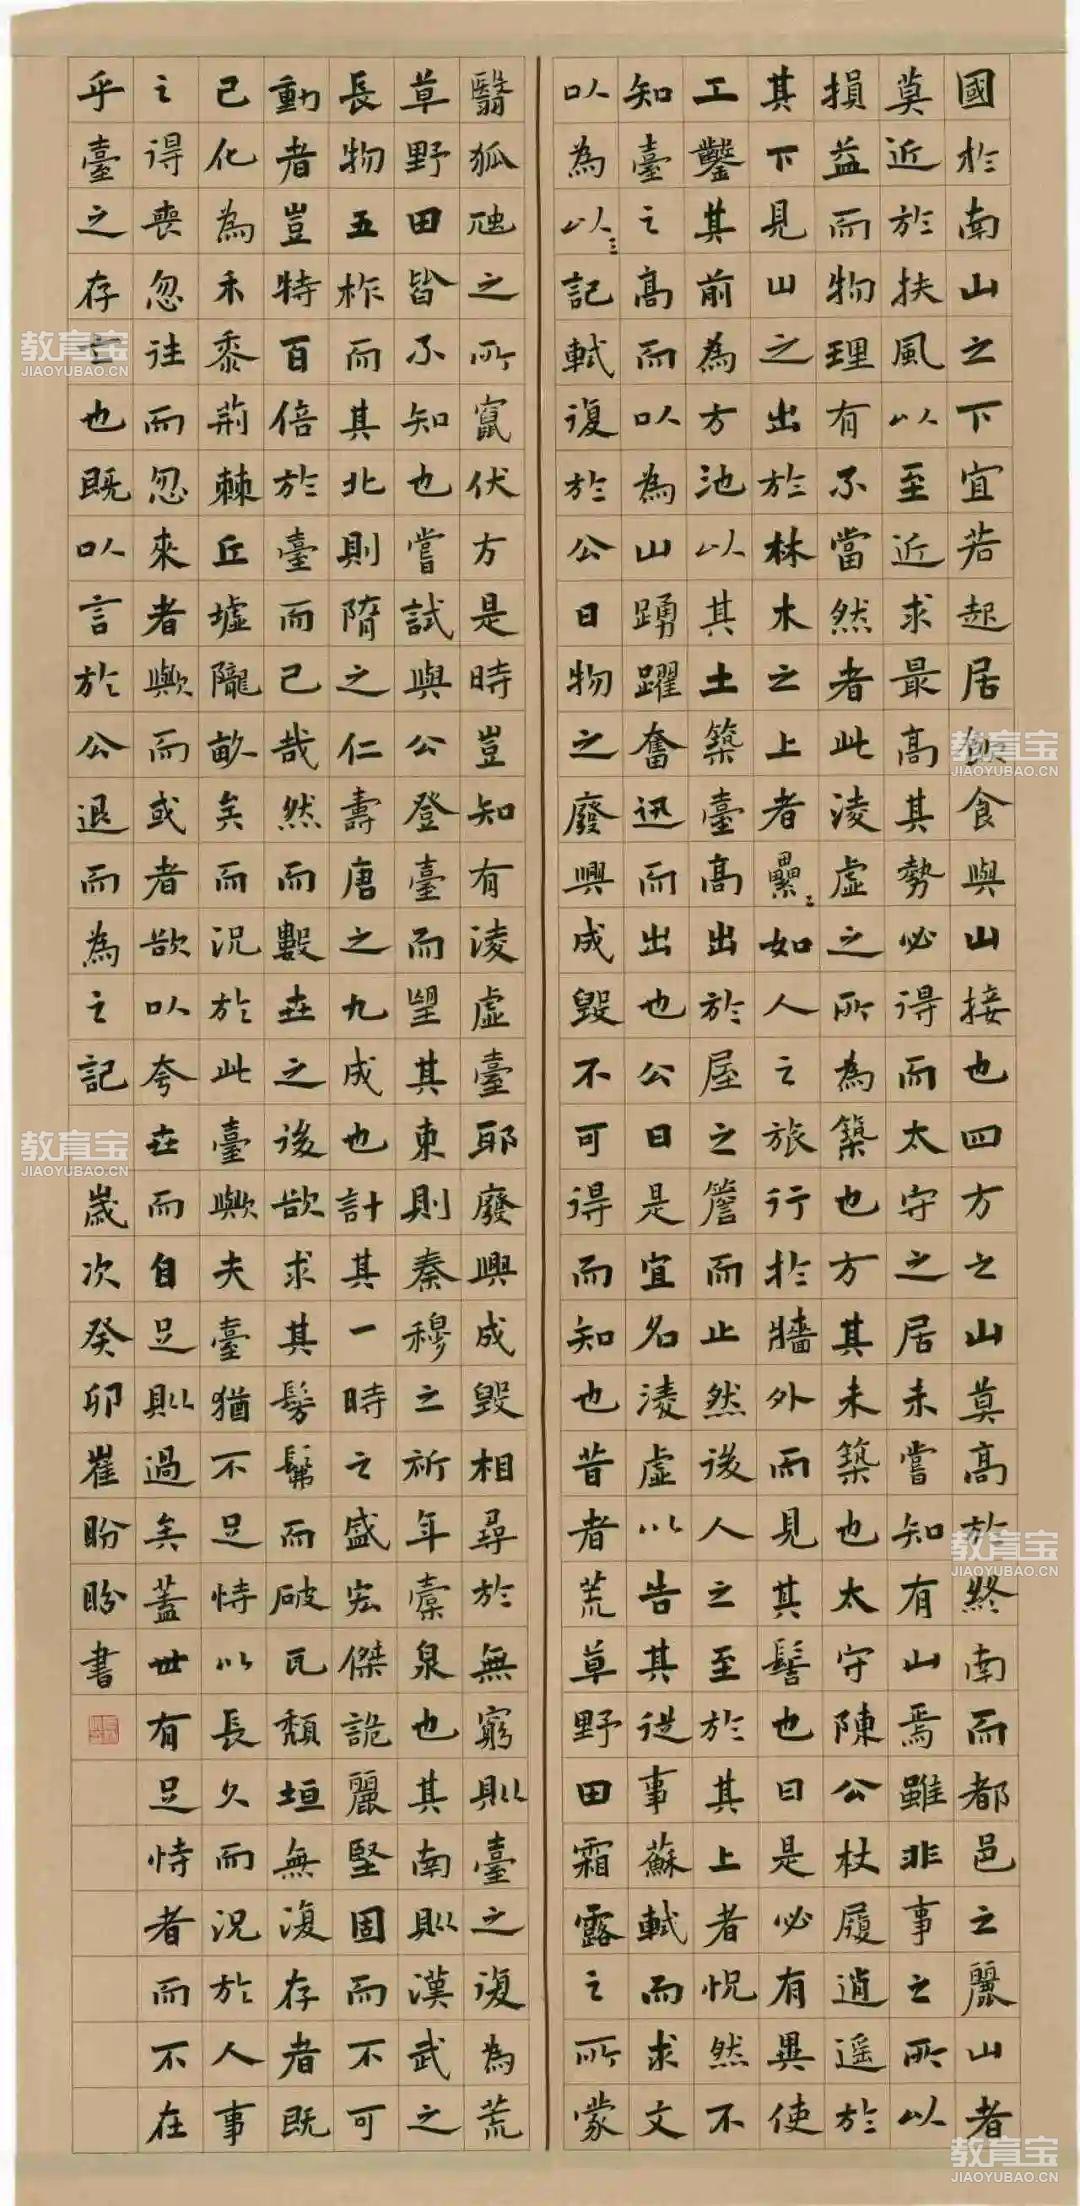 國於南山之下宜若起居飲食與山接也四方之山莫高於終南而都邑之麗山者
莫近於扶風以至近求最高其勢必得而太守之居未嘗知有山焉雖非事之所以
損益而物理有不當然者此淩虛之所為築也方其未築也太守陳公杖履逍遙於
其下見山之出於林木之上者纍〻如人之旅行於牆外而見其髻也曰是必有異使
工鑿其前為方池以其土築臺高出於屋之簷而止然後人之至於其上者怳然不
知臺之高而以為山踴躍奮迅而出也公曰是宜名淩虛以告其從事蘇軾而求文
以為以記軾復於公曰物之廢興成毀不可得而知也昔者荒草野田霜露之所蒙
翳狐虺之所竄伏方是時豈知有淩虛臺耶廢興成毀相尋於無窮則臺之復為荒
草野田皆不知也嘗試與公登臺而望其東則秦穆之祈年橐泉也其南則漢武之
長物五柞而其北則隋之仁壽唐之九成也計其一時之盛宏傑詭麗堅固而不可
動者豈特百倍於臺而已哉然而數世之後欲求其髣髴而破瓦頹垣無復存者既
已化為禾黍荊棘丘墟隴畝矣而況於此臺歟夫臺猶不足恃以長久而況於人事
之得喪忽往而忽來者歟而或者欲以夸世而自足則過矣蓋世有足恃者而不在
乎臺之存亡也既以言於公退而為之記 歲次癸卯崔盼盼書
教育宝
JIAOYUBAO.CN
教育宝
JIAOYUBAO.CN
教育宝
JIAOYUBAO.CN
教育宝
JIAOYUBAO.CN
教育宝
JIAOYUBAO.CN